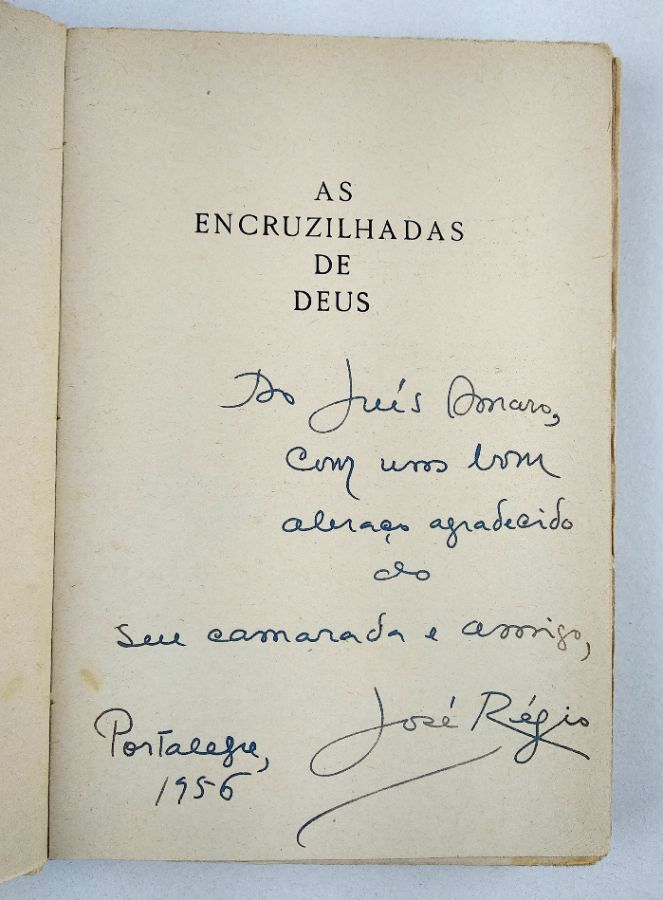 AS
ENCRUZILHADAS
DE
DEUS
Ao Luís Amaro,
com um bom
abraço agradecido
do
seu camarada e amigo,
José Régio
Portalegre,
1956